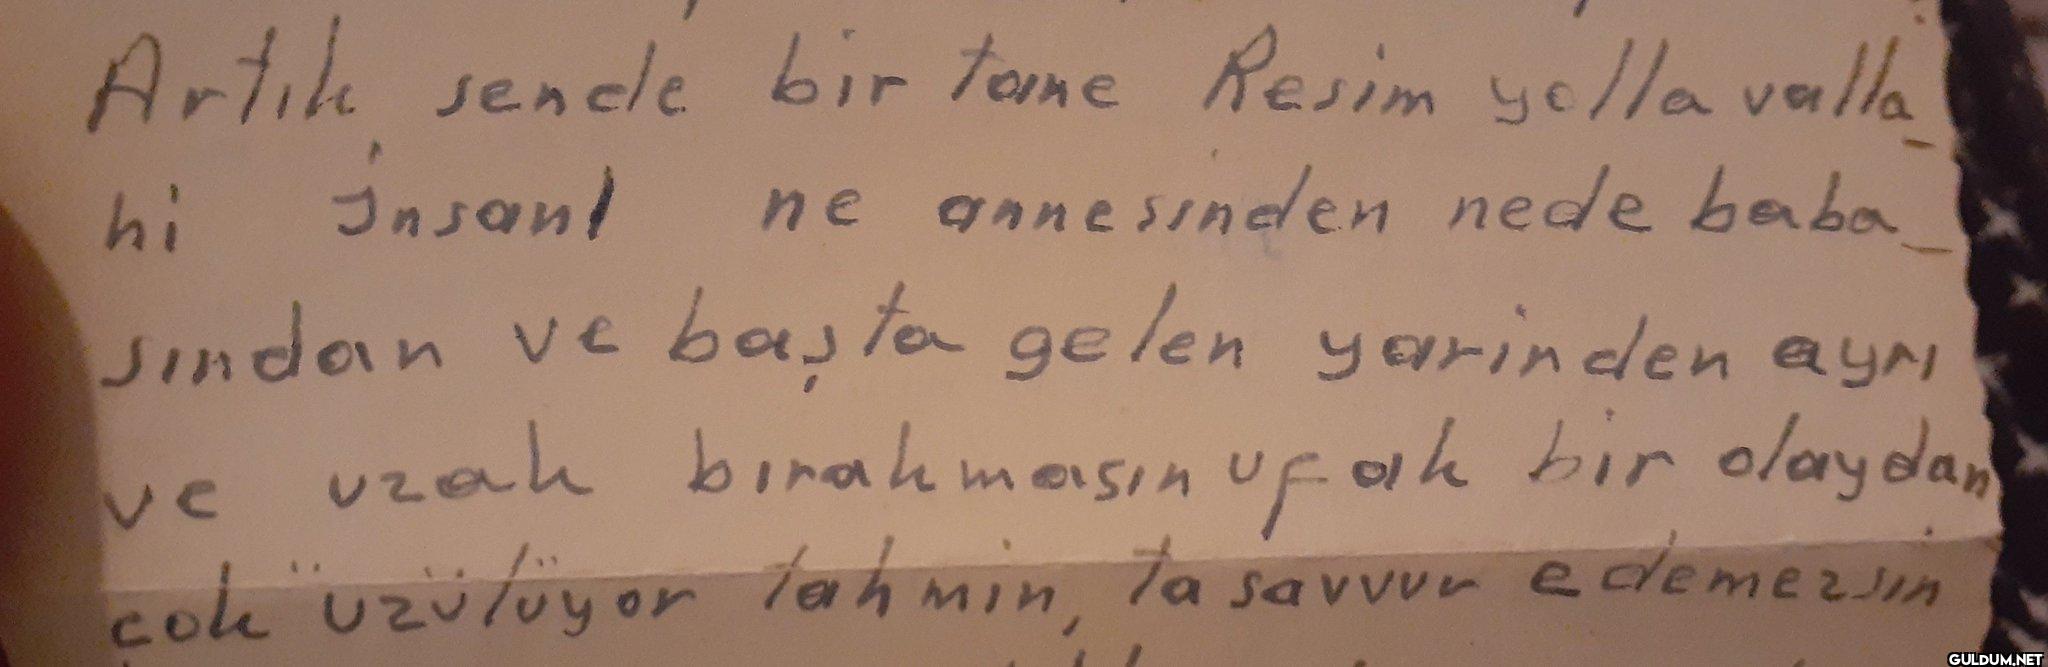 Artık sende bir tane Resim yolla valla_
hi İnsanı ne annesinden nede baba_
sından ve başta gelen yarinden ayrı
ve uzak bırakmasın ufak bir olaydan
çok üzülüyor tahmin, tasavvur edemezsin
GULDUM.NET